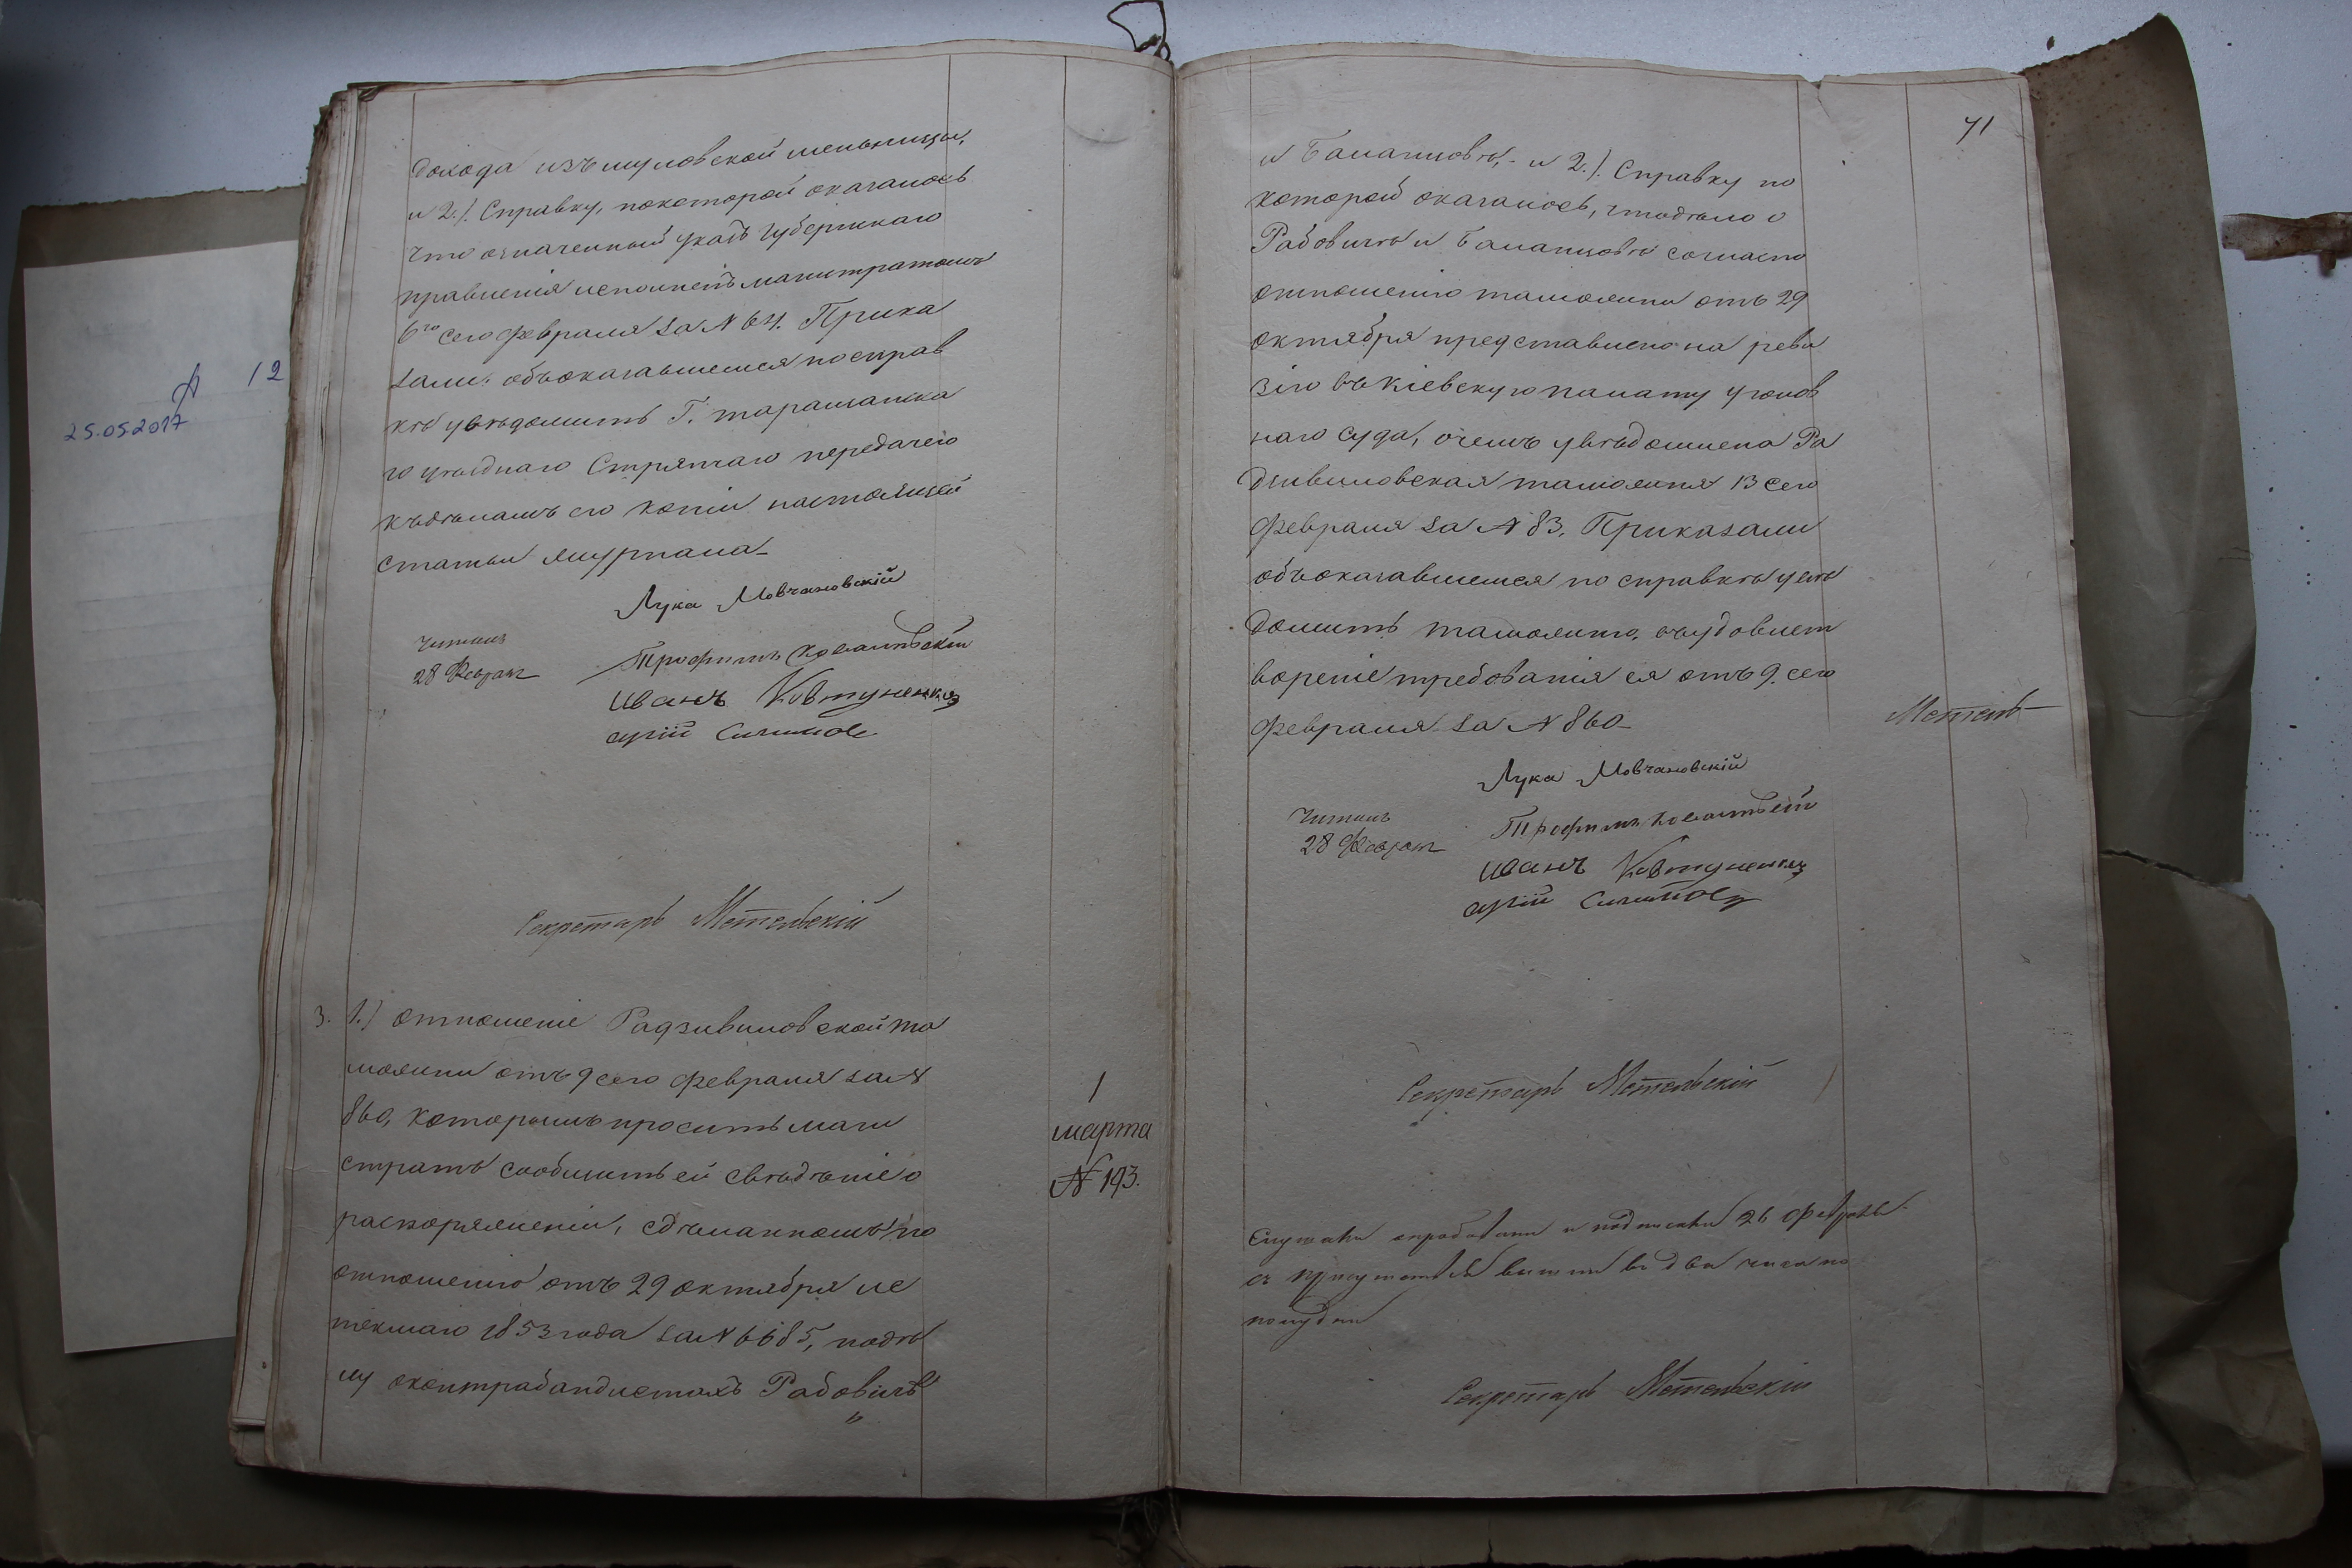 дохода изъ муловской мельницы,
и 2.) Справку, покоторой оказалось
что означенный указъ Губернскаго
правленія исполненъ магистратомъ
6го сего февраля за N 64. Прика
зали: объоказавшемся посправ
кѣ увѣдомить Г. таращанска
го уѣзднаго Стряпчаго передачею
къдѣламъ его копіи настоящей
статьи журнала
Лука Мовчановскій
Читалъ
28 Феврал
Трофимъ
иванъ Ковтуненко
Секретарь Метельскій
3. 1.) отношеніе Радзивиловской та
можни отъ 9 сего февраля за N
860, которымъ проситъ маги
стратъ сообщить ей свѣдѣніе о
распоряженіи, сдѣланномъ по
отношенію отъ 29 октября ис
текшаго 1853 года за N 6685,подѣ
лу оконтрабандистахъ Рабовичѣ
1
марта
N 193.
71
и Балагиовѣ, - и 2.). Справку по
которой оказалось, чтодѣло о
Рабовичѣ и Балагиовѣ согласно
отношенію таможни отъ 29
октября представлено на реви
зію въ Кіевскую палату уголов
наго суда, очемъ увѣдомлена Ра
дзивиловская таможня 13 сего
февраля за N 83. Приказали
объоказавшемся по справкѣ увѣ
домить таможню, въудовлет
вореніе требованія ея отъ 9. сего
февраля за N 860
Метель
Лука Мовчановскій
Читалъ
28 Феврал
Трофимъ
иванъ Ковтуненко
Секретарь Метельскій
и подписавъ 26 февраля
изъ присутствія вышли во два часа по
полудни
Секретарь Метельскій
А 12
25.05.2017